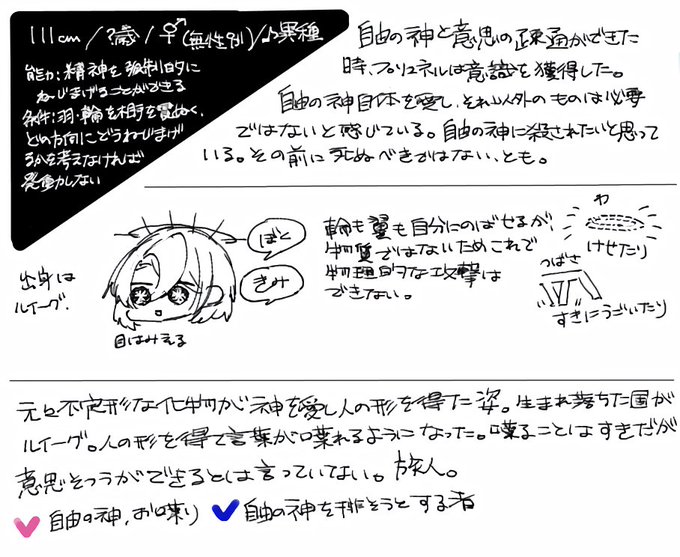 111cm/ 歳/ (無性別)/異種
能力:精神を強制的に
ねじまげることができる
条件:羽・輪を相手を貫ぬく、
どの方向にどうねじまげ
るかを考えなければ
発動しない
自由の神と意思の疎通ができた
時、プリュネルは意識を獲得した。
自由の神自体を愛し、それ以外のものは必要
ではないと感じている。自由の神に殺されたいと思って
いる。その前に死ぬべきではない、とも。
出身は
ルイーグ.
ぼく
きみ
目はみえる
輪も翼も自分にのばせるが
物質ではないためこれで
物理的な攻撃は
できない。
わ
けせたり
つばさ
すきにうごいたり
元は不定形な化物が神を愛し人の形を得た姿。生まれ落ちた国が
ルイーグ。人の形を得て言葉が喋れるようになった。喋ることはすきだが
意思そつうができるとは言っていない。旅人。
自由の神、お喋り 自由の神を排そうとする者